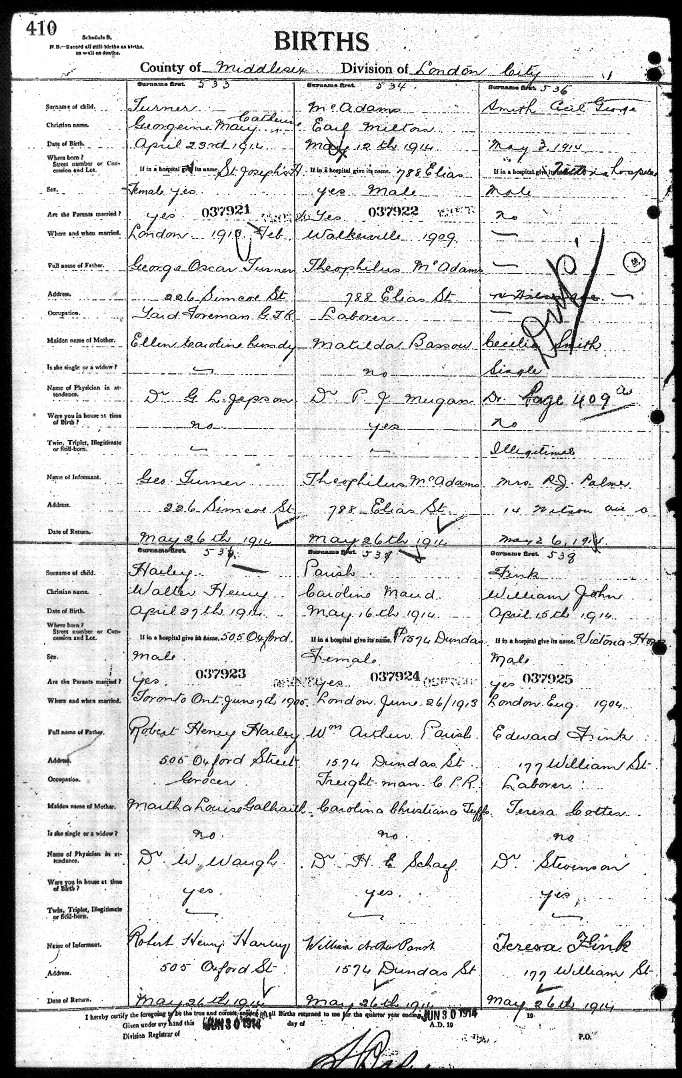 410
Schedule B.
N.B.—Record all still-births as births, as well as deaths.
BIRTHS
County of Middlesex Division of London City
Surname first. 533 Surname first. 534 Surname first. 536
Surname of child. Turner McAdams Smith Cecil George
Christian name. Georgeine Mary Catherine Earl Milton
Date of Birth. April 23rd 1914 May 12th 1914 May 3, 1914
Where born? Street number or Concession and Lot. If in a hospital give its name. St Joseph's H. If in a hospital give its name. 788 Elias If in a hospital give its name. Victoria hospital
Sex. Female yes. yes Male Male
Are the Parents married? yes 037921 Yes 037922 no
Where and when married. London 1913 Feb Walkerville 1909 —
Full name of Father. George Oscar Turner Theophilus McAdams —
Address. 226 Simcoe St 788 Elias St
Occupation. Yard Foreman G.T.R. Laborer —
Dup.
Maiden name of Mother. Ellen Matilda Cecilia Smith
Is she single or a widow? — no Single
Name of Physician in attendance. Dr G. L. Jepson Dr P. J. Mugan Dr. Page 409 a
Were you in house at time of Birth? no yes no
Twin, Triplet, Illegitimate or Still-born. — — Illegitimate
Name of Informant. Geo. Turner Theophilus McAdams Mrs. R.J. Palmer
Address. 226 Simcoe St 788 Elias St 14
Date of Return. May 26th 1914 May 26th 1914 May 26, 1914
Surname first. Surname first. Surname first. 538
Surname of child. Harley Parish Fink
Christian name. Walter Henry Caroline Maud William John
Date of Birth. April 27th 1914 May 16th 1914 April 15th 1914
Where born? Street number or Concession and Lot. If in a hospital give its name. 505 Oxford If in a hospital give its name. 1574 Dundas If in a hospital give its name. Victoria Hosp
Sex. Male Female Male
Are the Parents married? yes. 037923 yes 037924 yes 037925
Where and when married. Toronto Ont. June 7th 1905 London June 26/1913 London Eng. 1904
Full name of Father. Robert Henry Harley Wm Arthur Parish Edward Fink
Address. 505 Oxford Street 1574 Dundas St 177 William St
Occupation. Grocer Freight man C.P.R. Laborer
Maiden name of Mother. Martha Louise Galbraith Carolina Christiana Teresa Cotter
Is she single or a widow? no. no. no
Name of Physician in attendance. Dr W. Waugh Dr H E Dr Stevenson
Were you in house at time of Birth? yes. yes. yes.
Twin, Triplet, Illegitimate or Still-born. — — —
Name of Informant. Robert Henry Harley William Arthur Parish Teresa Fink
Address. 505 Oxford St 1574 Dundas St 177 William St
Date of Return. May 26th 1914 May 26th 1914 May 26th 1914
I hereby certify the foregoing to be the true and correct returned to me for the quarter year ending JUN 30 1914
Given under my hand this JUN 30 1914 day of A.D. 19
Division Registrar of P.O.